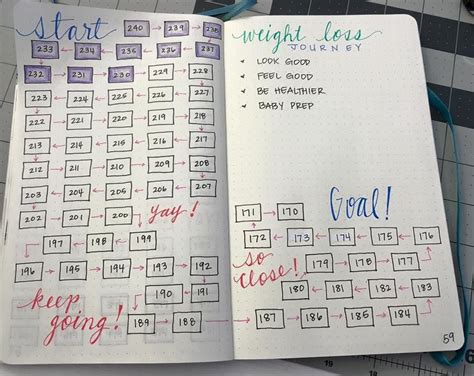 start 240 239 238
233 234 235 236 237
232 231 230 229 228
223 224 225 226 227
222 221 220 219 218
213 214 215 216 217
212 211 210 209 208
203 204 205 206 207
202 201 200 yay!
197 198 199
196 195 194 193 192
190 191
keep
going!
189 188
weight loss
JOURNEY
✓ LOOK GOOD
✓ FEEL GOOD
✓ BE HEALTHIER
✓ BABY PREP
Goal!
171 170
172 173 174 175 176
so
close!
179 178 177
180 181 182 183
187 186 185 184
59